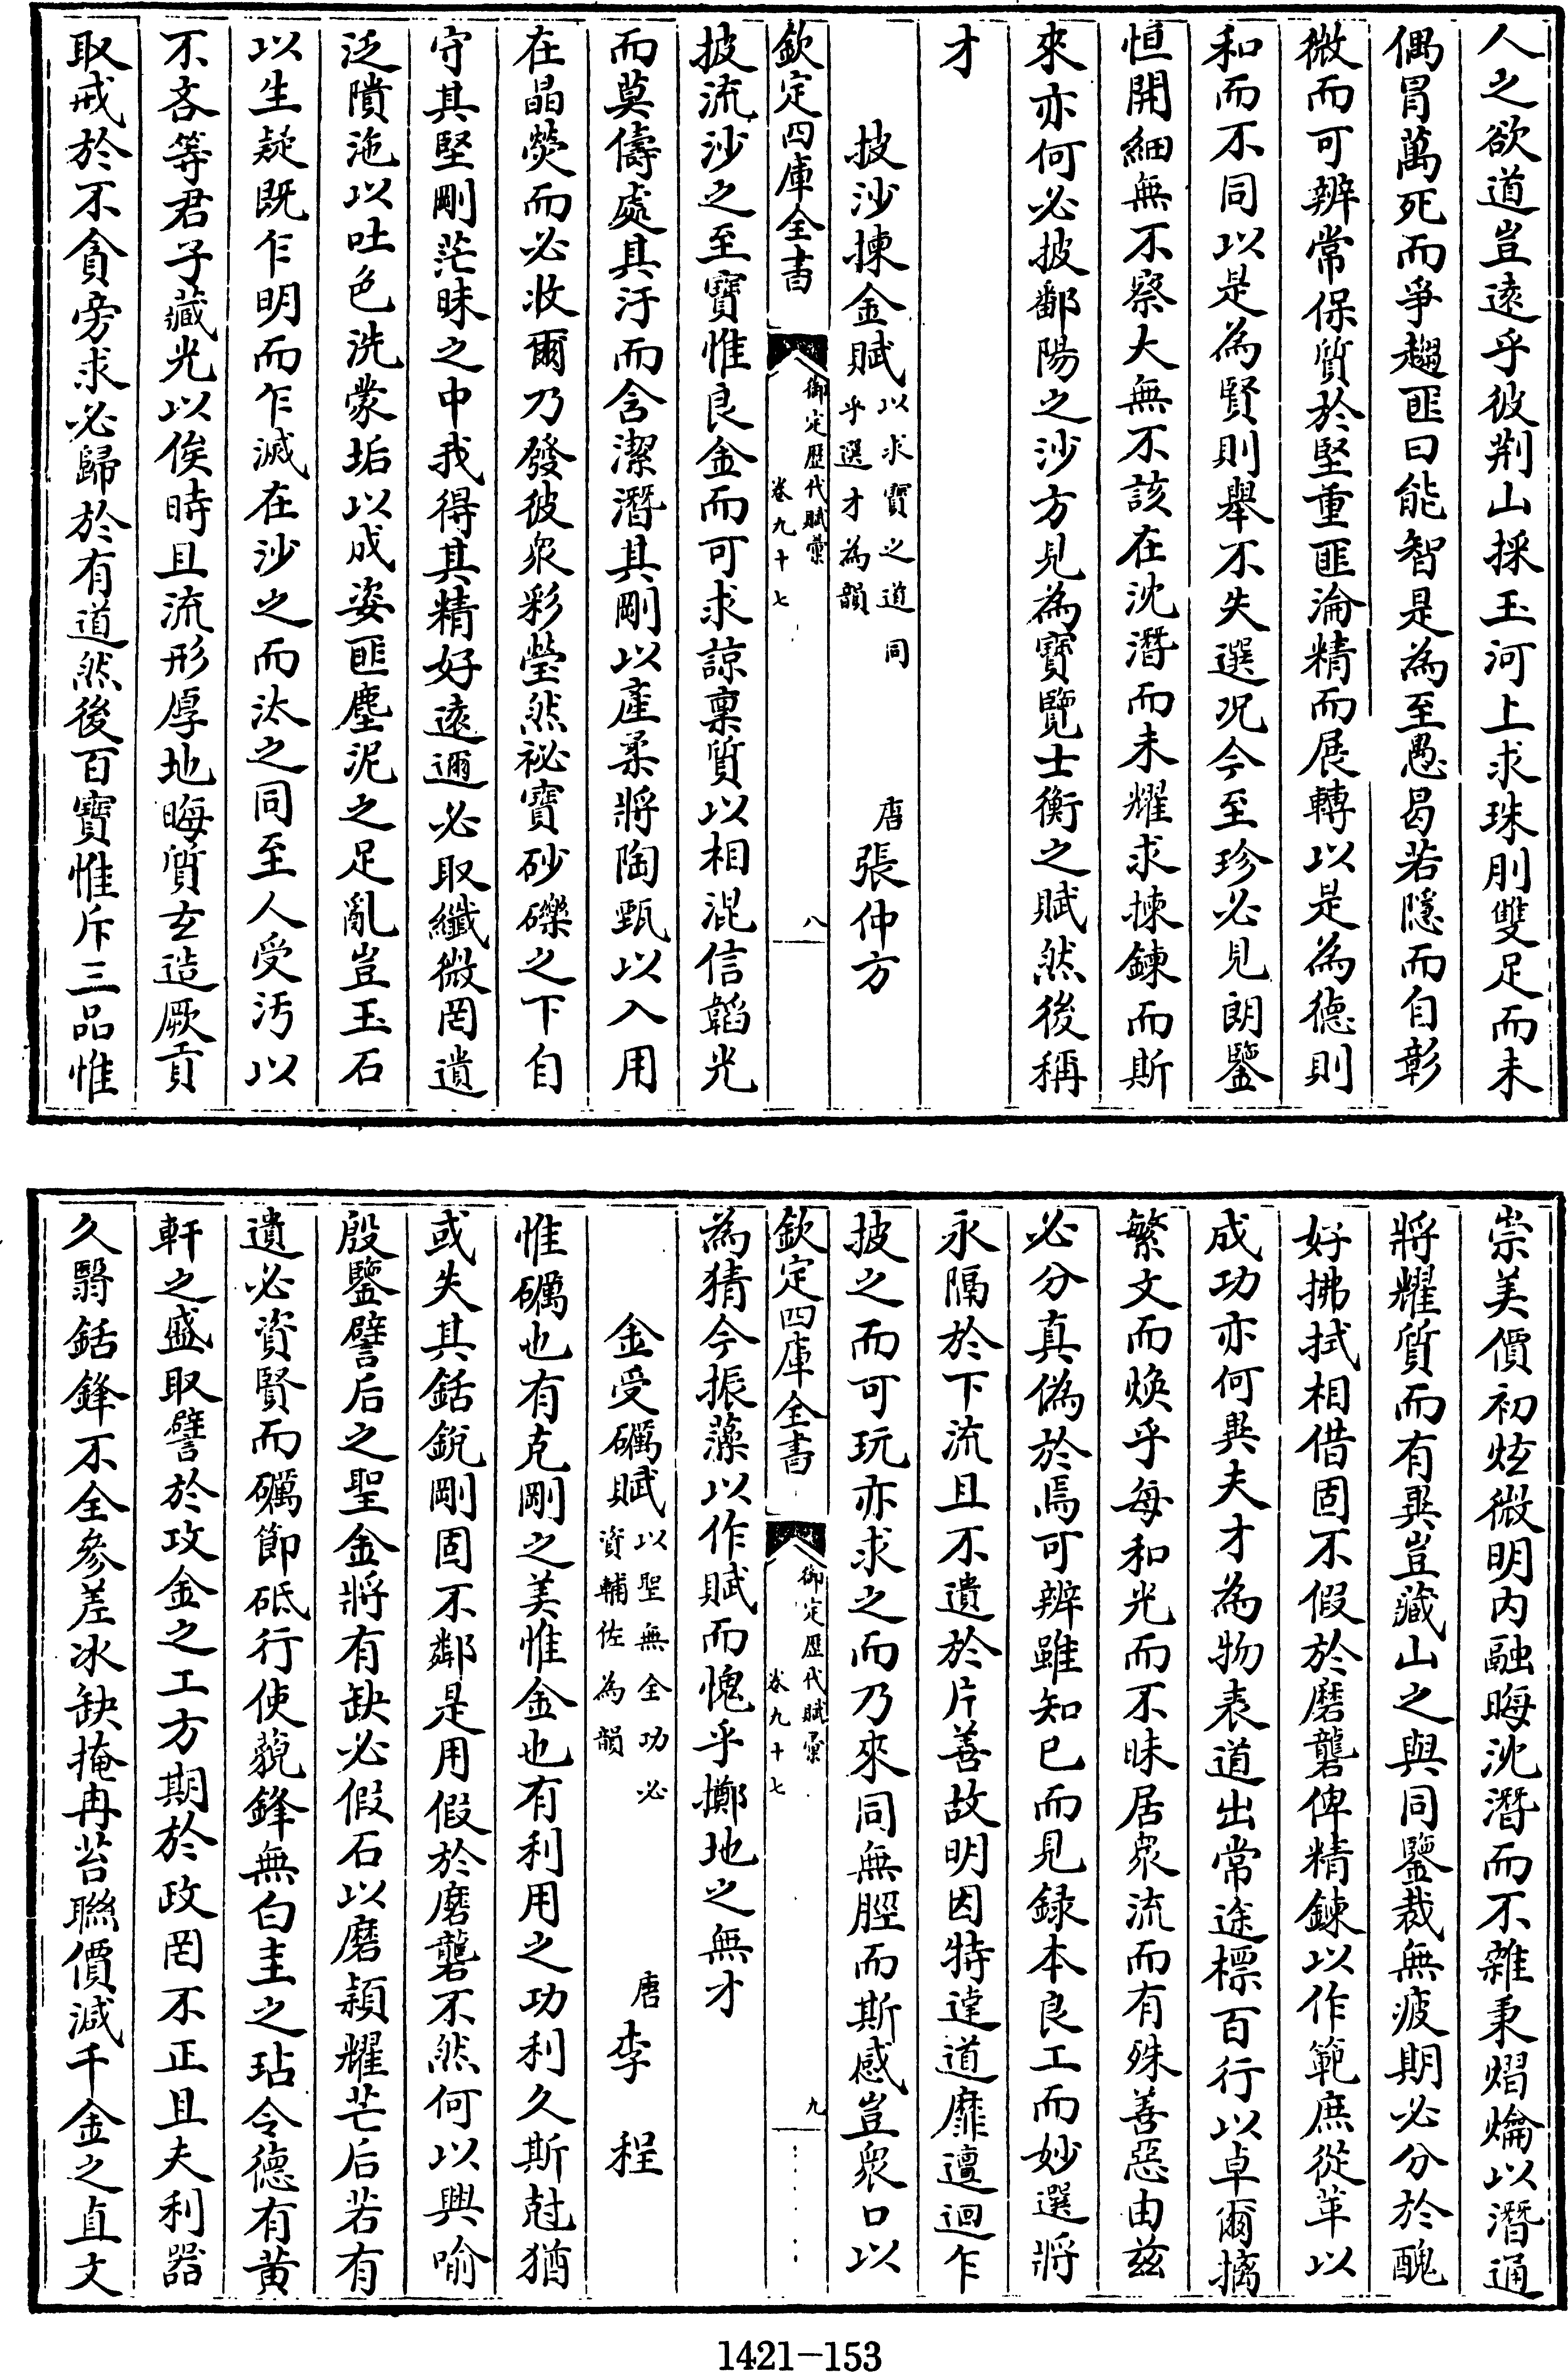 人之欲道豈遠乎彼荆山採玉河上求珠刖雙足而未
偶冒萬死而爭趨匪曰能智是為至愚曷若隱而自彰
微而可辨常保質於堅重匪淪精而展轉以是為德則
和而不同以是為賢則舉不失選况今至珍必見朗鑒
恒開細無不察大無不該在沈潛而未耀求揀鍊而斯
來亦何必披鄱陽之沙方見為寶覽士衡之賦然後稱
才
披沙揀金賦以求寶之道同乎選才為韻 唐張仲方
欽定四庫全書 御定歷代賦彙 卷九十七 八
披流沙之至寶惟良金而可求諒稟質以相混信韜光
而莫儔處其汙而含潔潛其剛以產柔將陶甄以入用
在晶熒而必收爾乃發彼衆彩瑩然祕寶砂礫之下自
守其堅剛茫昧之中我得其精好遠邇必取纖微罔遺
泛隤沲以吐色洗蒙垢以成姿匪塵泥之足亂豈玉石
以生疑既乍明而乍滅在沙之而汰之同至人受汚以
不吝等君子藏光以俟時且流形厚地晦質玄造厥貢
取戒於不貪旁求必歸於有道然後百寶惟斥三品惟
崇美價初炫微明内融晦沈潛而不雜秉熠爚以潛通
將耀質而有異豈藏山之與同鑒裁無疲期必分於醜
好拂拭相借固不假於磨礱俾精鍊以作範庶從革以
成功亦何異夫才為物表道出常途標百行以卓爾摛
繁文而煥乎每和光而不昧居衆流而有殊善惡由兹
必分真偽於焉可辨雖知己而見録本良工而妙選將
永隔於下流且不遺於片善故明因特達道靡邅迴乍
披之而可玩亦求之而乃來同無脛而斯感豈衆口以
欽定四庫全書 御定歷代賦彙 卷九十七 九
為猜今振藻以作賦而愧乎擲地之無才
金受礪賦以聖無全功必資輔佐為韻 唐李程
惟礪也有克剛之美惟金也有利用之功利久斯尅猶
或失其銛銳剛固不鄰是用假於磨礱不然何以興喻
殷鑒譬后之聖金將有缺必假石以磨頴耀芒后若有
遺必資賢而礪節砥行使藐鋒無白圭之玷令德有黄
軒之盛取譬於攻金之工方期於政罔不正且夫利器
久翳銛鋒不全參差冰缺掩冉苔聮價減千金之直文
1421-153